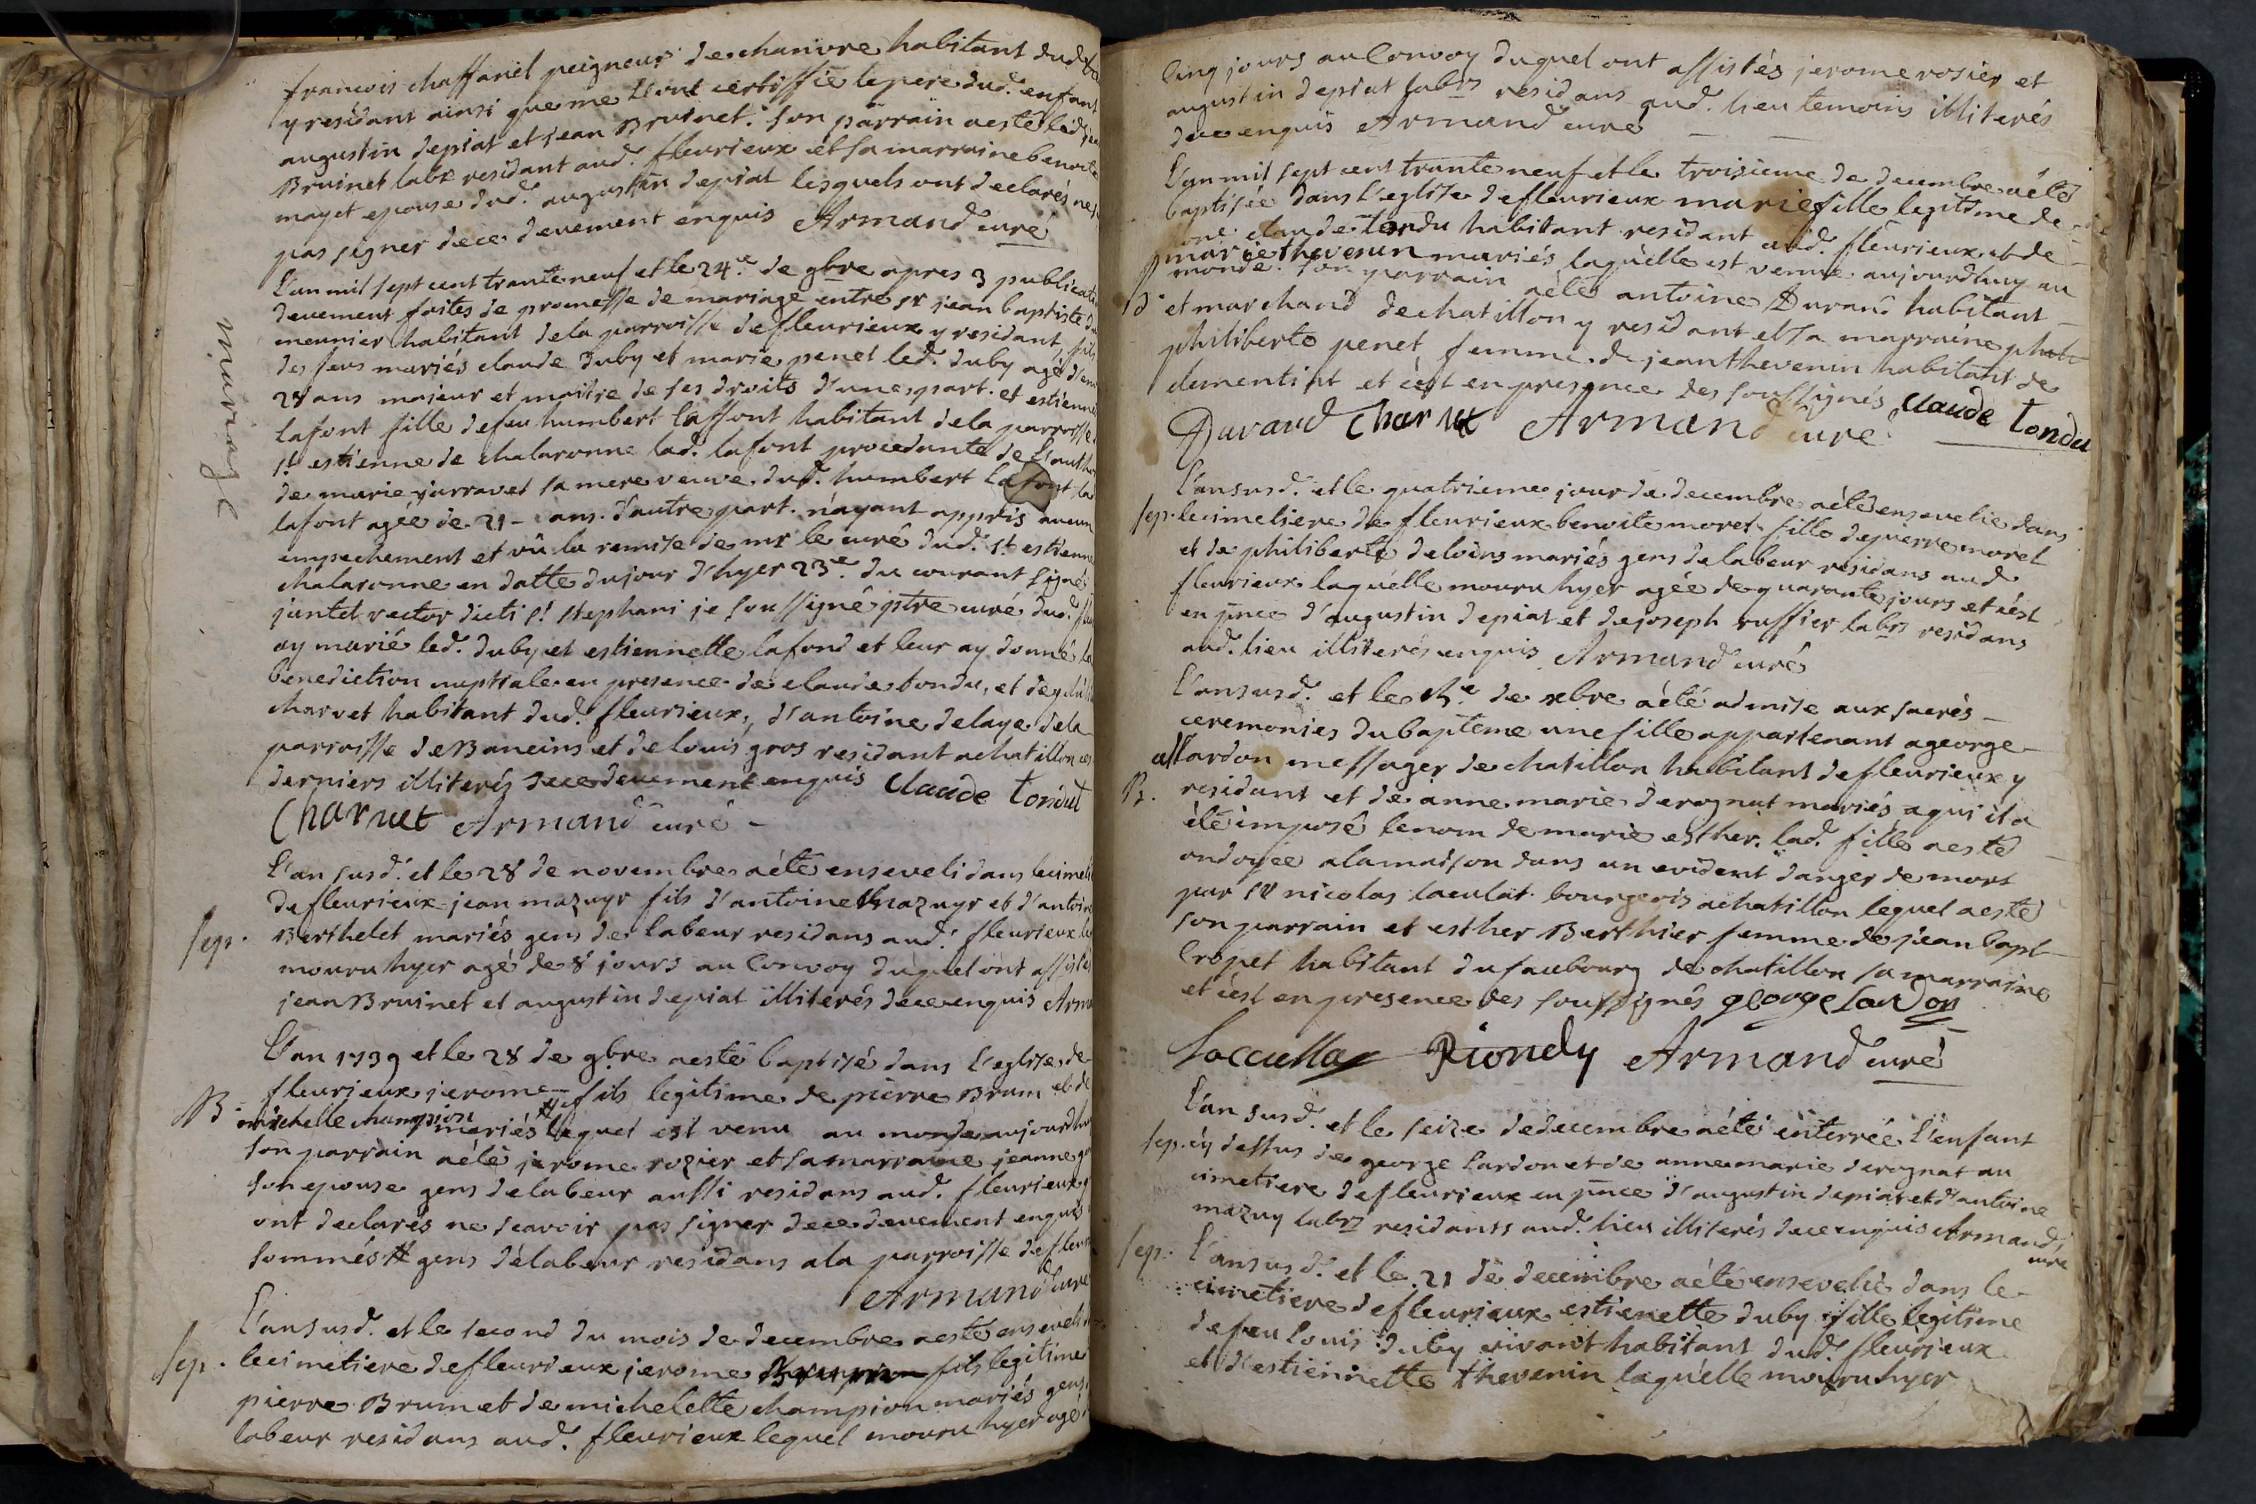 francois chaffanel peigneur de chanvre habitant dud.
y residant ainsi que me l'ont certiffié le pere dud. enfant
augustin depiat et jean Bruinet. son parrain aesté led. jean
Bruinet labr residant aud. fleurieux et sa marraine benoite
mayet epouse dud. augustin depiat lesquels ont declarés ne
pas signer de ce deuement enquis Armand curé
mariage
L'an mil sept cent trante neuf et le 24e. de 9bre apres 3 publications
deuement faites de promesse de mariage entre sr jean baptiste
meunier habitant dela parroisse de fleurieux y residant, fils
des feus mariés claude Duby et marie penet led. duby agé d'en
28 ans majeur et maitre de ses droits d'une part. et estienne
lafont fille defeu humbert laffont habitant dela parroisse
st estienne de chalaronne lad. lafont procedante de l'authe
de marie jarravet sa mere veuve dud. humbert lafont lad
lafont agée de 21 - ans. d'autre part. n'ayant appris aucun
empechement et vû la remise de mr le curé dud. st estienne
chalaronne en datte dujour d'hyer 23e. du courant signé
jantet rector dicti sti stephani je soussigné ptre curé dud.
ay marié led. duby et estiennette lafond et leur ay donné la
benediction nuptiale en presence de claude tondu, et de
charvet habitant dud. fleurieux, d'antoine delaye dela
parroisse de Baneins et de louis gros residant a chatillon ces
derniers illiterés de ce deuement enquis Claude tondut
Charvet Armand curé -
L'an susd. et le 28 de novembre aété enseveli dans le cimeti
de fleurieux jean mazuyr fils d'antoine Mazuyr et d'antoin
sep. Berthelet mariés gens de labeur residans aud. fleurieux le
mouru hyer agé de 8 jours au Convoy duquel ont assistés
jean Bruinet et augustin depiat illiterés de ce enquis Arma
L'an 1739 et le 28 de 9bre aesté baptisé dans l'eglise de
B. fleurieux jerome fils legitime de pierre Brum et de
michelle champion mariés # lequel est venu au monde aujourdhu
son parrain aété jerome rozier et sa marraine jeanne
son epouse gens delabeur aussi residans aud. fleurieux
ont declarés ne scavoir pas signer de ce deuement enquis
sommés # gens délabeur residans ala parroisse de fleur
Armand curé
L'an susd. et le second du mois de decembre aesté enseveli
sep. le cimetiere de fleurieux jerome Brum fils legitime
pierre Brum et de michelette champion mariés gens
labeur residans aud. fleurieux lequel mouru hyer agé
Cinq jours au Convoy duquel ont assistés jerome rosier et
augustin depiat labrs residans aud. lieu temoins illiterés
de ce enquis Armand curé
L'an mil sept cent trante neuf et le troisieme de decembre aété
baptisée dans l'eglise de fleurieux marie fille legitime de
claude tondu habitant residant aud. fleurieux et de
marie thevenin mariés laquelle est venue aujourdhuy au
B monde. son parrain aété antoine Durand habitant
et marchand de chatillon y residant et sa marraine
philiberte penet femme de jean thevenin habitant de
clementiat et cest en presence des soussignés Claude tondu
Durand Charvet Armand curé
L'an susd. et le quatrieme jour de decembre aété ensevelie dans
sep. le cimetiere de fleurieux benoite morel fille depierre morel
et de philiberte deloins mariés gens delabeur residans aud
fleurieux laquelle mouru hyer agée de quarante jours et cest
en pnce d'augustin depiat et de joseph ruffier labrs residans
aud. lieu illiterés enquis Armand curé
L'an susd. et le de xbre aété admise aux sacrés
ceremonies du baptéme une fille appartenant a george
lardon messager de chatillon habitant de fleurieux y
B. residant et de anne marie derognat mariés a qui il a
été imposé le nom de marie esther. lad. fille aesté
ondoyée ala maison dans un evident danger de mort
par sr nicolas laculat bourgeois a chatillon lequel aesté
son parrain et esther Berthier femme de jean bapt
Cropet habitant du faubourg de chatillon sa marraine
et cest en presence des soussignés george lardon
Piondy Armand curé
L'an susd. et le seize de decembre aété enterrée l'enfant
sep. cy dessus de george lardon et de anne marie derognat au
cimetiere de fleurieux en pnce d'augustin depiat et d'antoine
mazuy labrs residants aud. lieu illiterés de ce enquis Armand
curé
sep. L'an susd. et le 21 de decembre aété ensevelie dans le
cimetiere de fleurieux estienette duby fille legitime
de feu louis duby vivant habitant dud. fleurieux
et d'estiennette thevenin laquelle mouru hyer